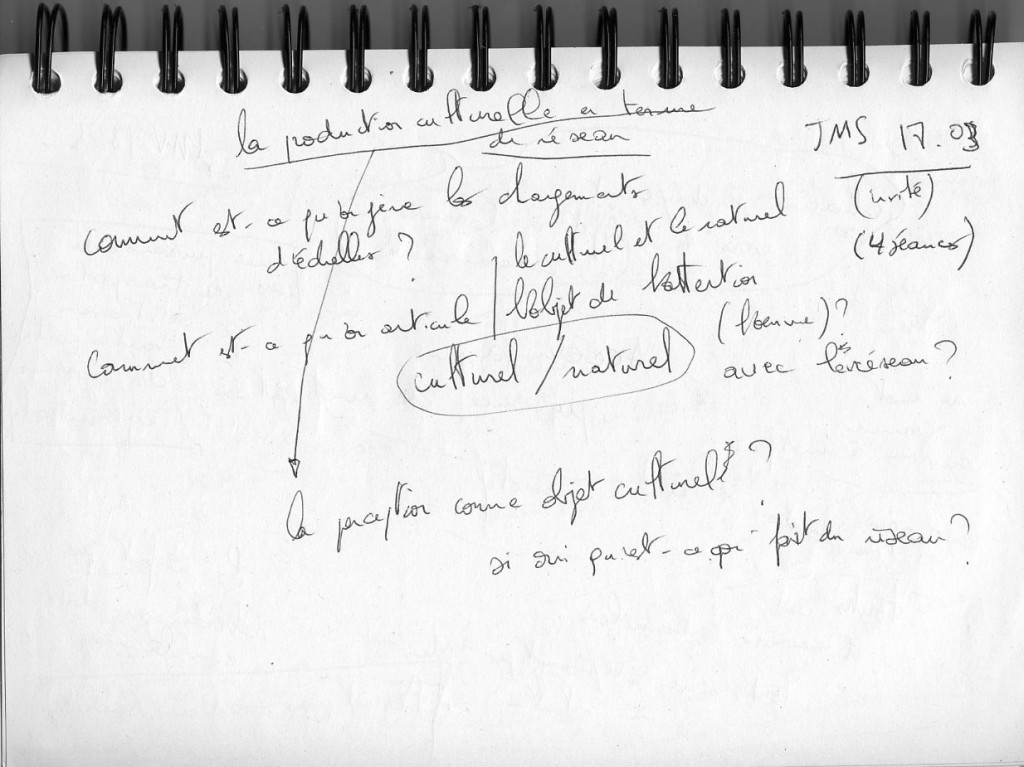 la production culturelle en terme
de réseau
JMS 17.03
(unité)
(4 séances)
comment est-ce qu'on gère les changements
d'échelles ?
le culturel et le naturel
comment est-ce qu'on articule l'objet de l'attention
(l'oeuvre) ?
avec le réseau ?
culturel / naturel
la perception comme objet culturel* ?
si oui qu'est-ce qui fait du réseau ?